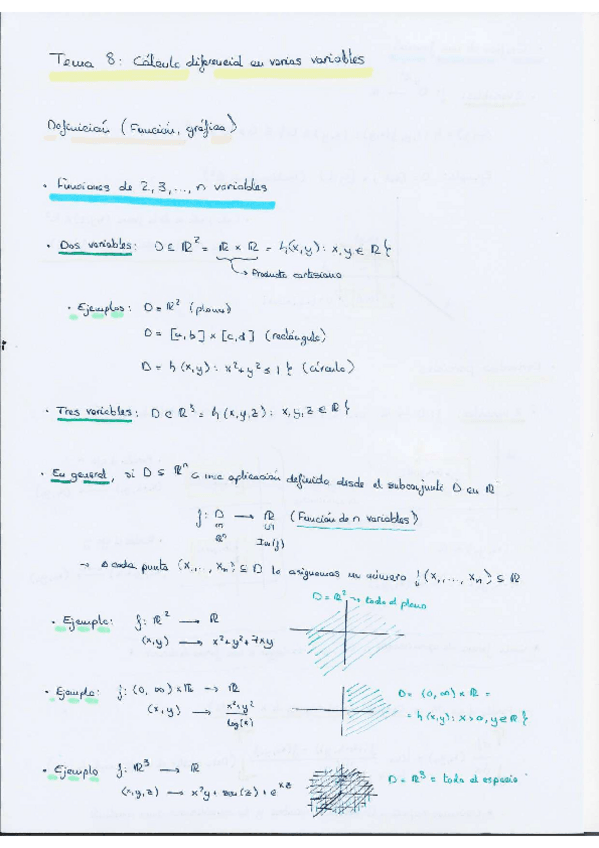 Tema 8: Cálculo diferencial en varias variables
Definición (Función, gráfica)
· Funciones de 2, 3, ..., n variables
· Dos variables: D ⊆ ℝ² = ℝ × ℝ = {(x,y): x,y ∈ ℝ}
↳ Producto cartesiano
· Ejemplos: D = ℝ² (plano)
D = [a,b] × [c,d] (rectángulo)
D = {(x,y): x²+y² ≤ 1} (círculo)
· Tres variables: D ⊂ ℝ³ = {(x,y,z): x,y,z ∈ ℝ}
· En general, si D ⊆ ℝⁿ a una aplicación definida desde el subconjunto D en ℝ
f: D → ℝ (Función de n variables)
ℝⁿ Im(f)
→ A cada punto (x,..., xₙ) ⊆ D le asignamos un número f(x,..., xₙ) ⊆ ℝ
D = ℝ² → todo el plano
· Ejemplo: f: ℝ² → ℝ
(x,y) → x²+y²+7xy
· Ejemplo: f: (0, ∞) × ℝ → ℝ
D = (0, ∞) × ℝ =
(x,y) → x²+y² / log(x)
= {(x,y): x>0, y∈ℝ}
· Ejemplo f: ℝ³ → ℝ
D = ℝ³ = todo el espacio
(x,y,z) → x²y + sen(z) + e^xz